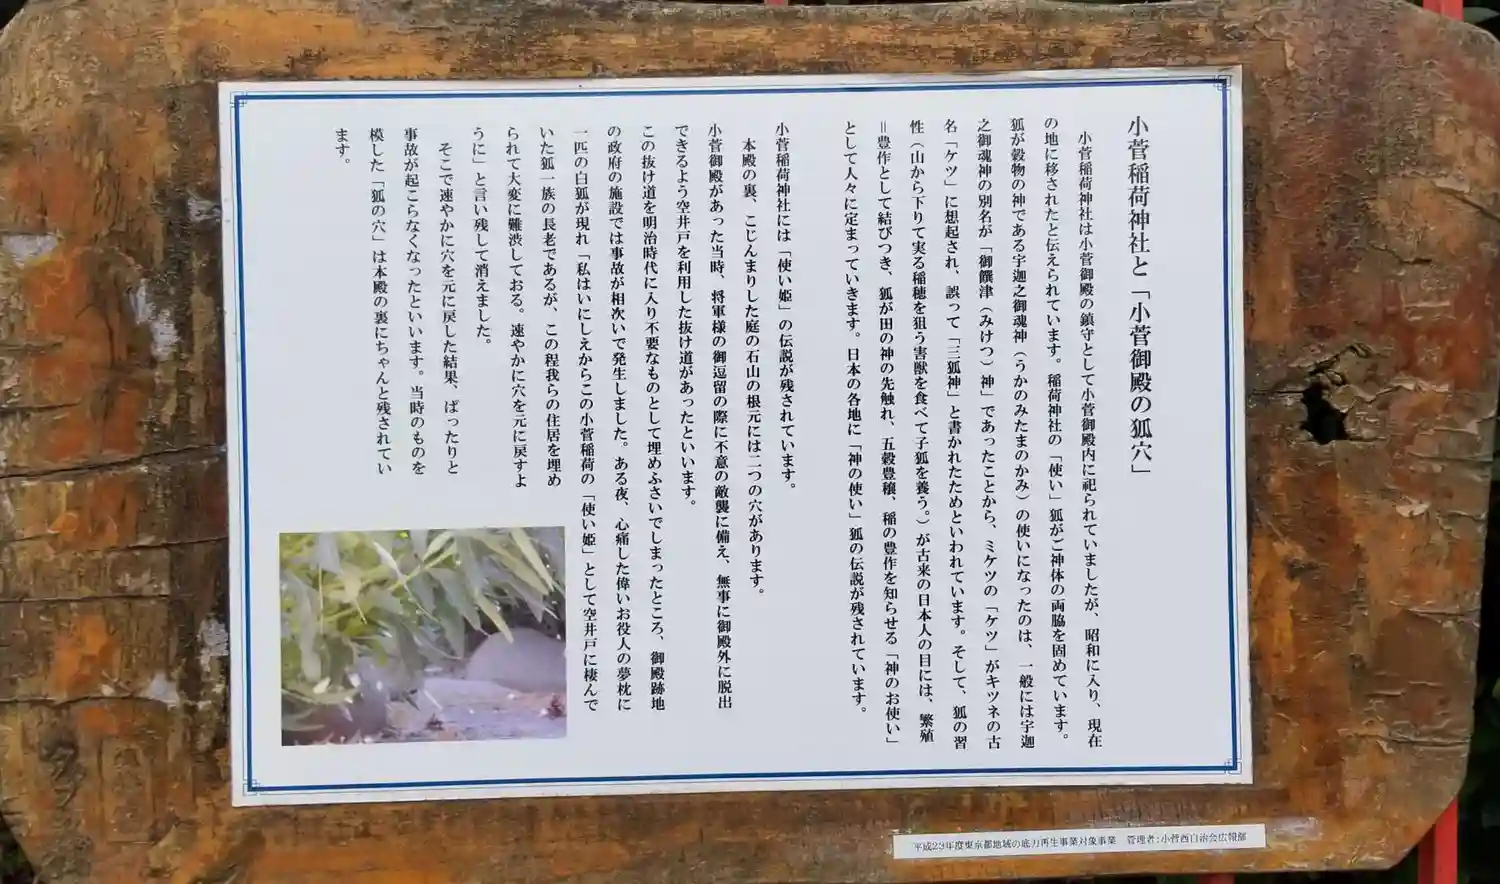 小菅稲荷神社と「小菅御殿の狐穴」
小菅稲荷神社は小菅御殿の鎮守として小菅御殿内に祀られていましたが、昭和に入り、現在
の地に移されたと伝えられています。稲荷神社の「使い」狐がご神体の両脇を固めています。
狐が穀物の神である宇迦之御魂神（うかのみたまのかみ）の使いになったのは、一般には宇迦
之御魂神の別名が「御饌津（みけつ）神」であったことから、ミケツの「ケツ」がキツネの古
名「ケツ」に想起され、誤って「三狐神」と書かれたためといわれています。そして、狐の習
性（山から下りて実る稲穂を狙う害獣を食べて子狐を養う。）が古来の日本人の目には、繁殖
＝豊作として結びつき、狐が田の神の先触れ、五穀豊穣、稲の豊作を知らせる「神のお使い」
として人々に定まっていきます。日本の各地に「神の使い」狐の伝説が残されています。
小菅稲荷神社には「使い姫」の伝説が残されています。
本殿の裏、こじんまりした庭の石山の根元には二つの穴があります。
小菅御殿があった当時、将軍様の御逗留の際に不意の敵襲に備え、無事に御殿外に脱出
できるよう空井戸を利用した抜け道があったといいます。
この抜け道を明治時代に入り不要なものとして埋めふさいでしまったところ、御殿跡地
の政府の施設では事故が相次いで発生しました。ある夜、心痛した偉いお役人の夢枕に
一匹の白狐が現れ「私はいにしえからこの小菅稲荷の「使い姫」として空井戸に棲んで
いた狐一族の長老であるが、この程我らの住居を埋め
られて大変に難渋しておる。速やかに穴を元に戻すよ
うに」と言い残して消えました。
そこで速やかに穴を元に戻した結果、ぱったりと
事故が起こらなくなったといいます。当時のものを
模した「狐の穴」は本殿の裏にちゃんと残されてい
ます。
平成23年度東京都地域の底力再生事業対象事業　管理者：小菅西自治会広報部